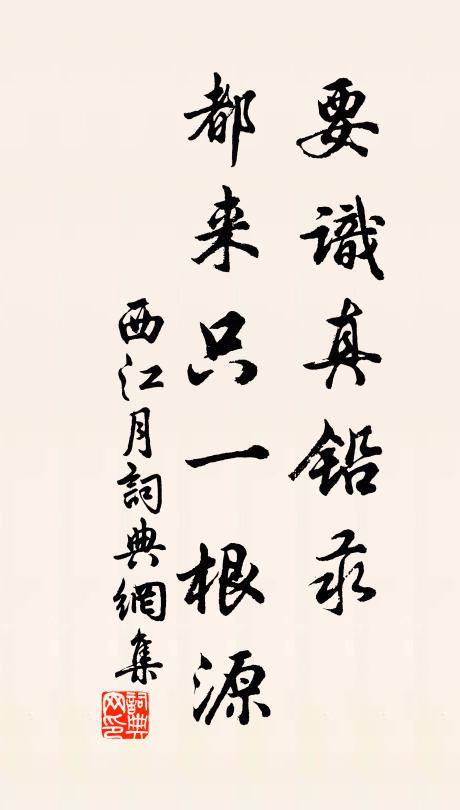 要識真鉛汞
都来只一根源
西江月詞典網集
詞典
网印